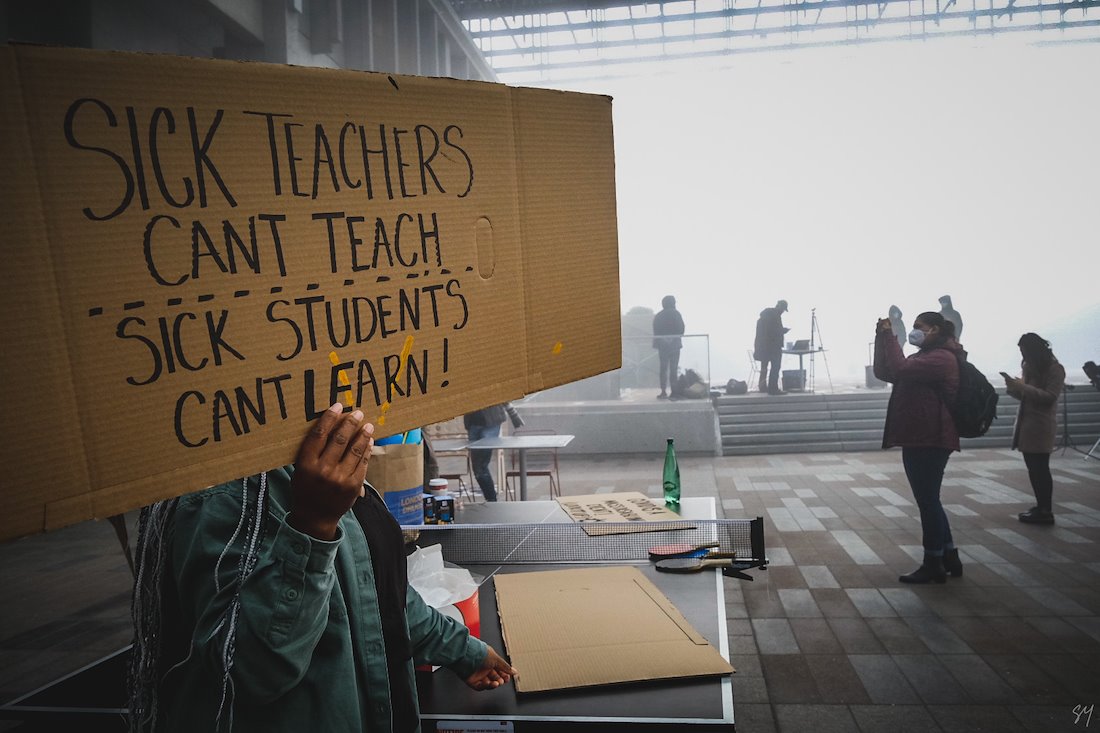 SICK TEACHERS
CANT TEACH
SICK STUDENTS
CANT LEARN!
LONDON
SY